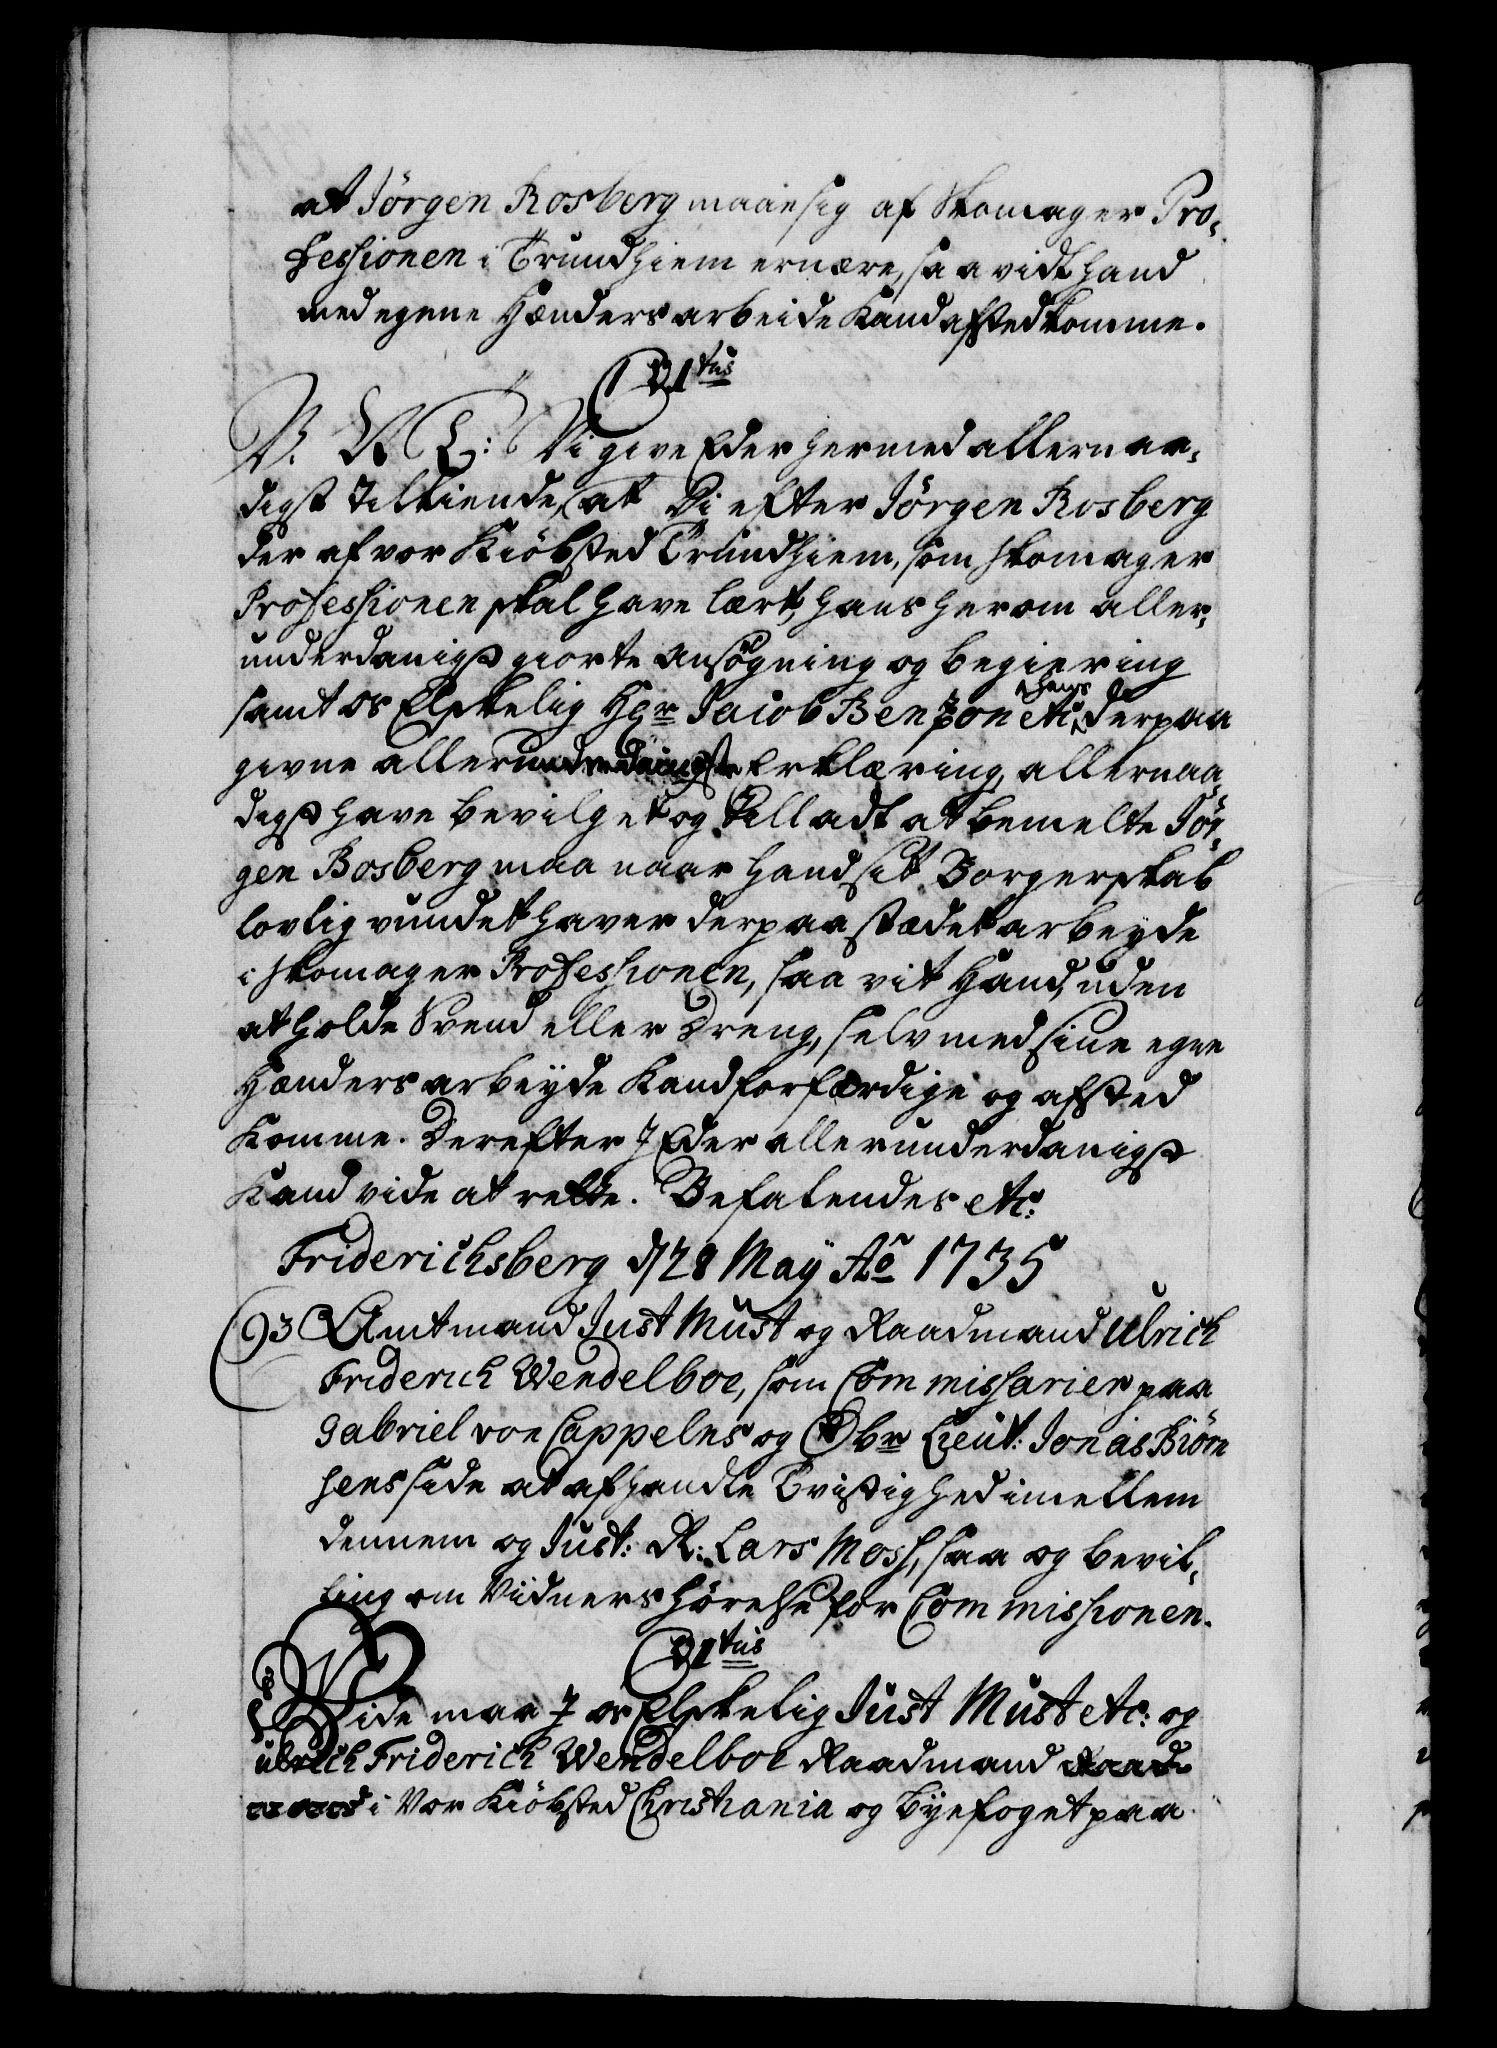 at Jörgen Rosberg maae sig af Skomager Pro-
fessionen i Trundhiem ernære, saavidt hand
med egene Hænders arbeide Kand afstedkomme.
C1tus
V. A G: Vi give Eder hermed allernaa-
digst tilkiende, at Vi efter Jörgen Rosberg
der af vor Kiöbsted Trundhiem, som skomager
Professionen skal have lært, hans herom aller-
underdanigst giorte ansögning og begiering
samt os Elskelig Hr Jacob Benzon etc: hans derpaa
givne allerunderdanigste Erklæring, allernaa-
digst have bevilget og tilladt at bemelte Jör-
gen Bosberg maa naar hand sit Borgerskab
lovlig vundet haver derpaa stædet arbeyde
i skomager Professionen, saa vit Hand, uden
at holde Svend eller Dreng, selv med sine egne
Hænders arbeyde Kand forfærdige og afsted
Komme. Derefter I Eder allerunderdanigst
Kand vide at rette. Befalendes etc:
Friderichsberg d 28 May Ao 1735
93 Amtmand Just Must og Raadmand Ulrich
Friderich Wendelboe, som Commissarier paa
Gabriel von Cappelns og Obr Lieut: Jonas Biörn
sens side at afhandle Tvistighed imellem
dennem og Just: R: Lars Moss, saa og bevil-
ling om Vidners hörelse for Commissionen.
C1tus
Vide maa I os Elskelig Just Must etc: og
Ulrich Friderich Wendelboe Raadmand
i Vor Kiöbsted Christiania og Byefoget paa